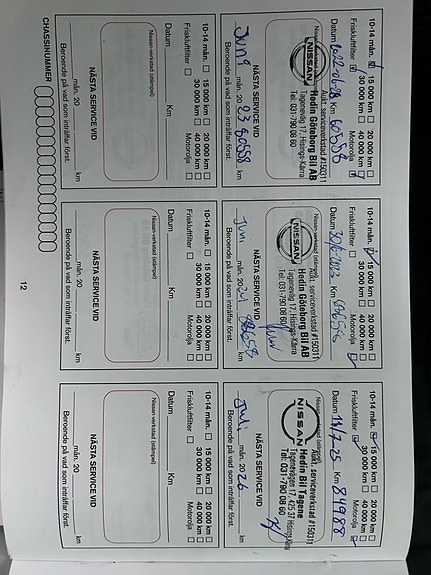 10-14 mån. 15 000 km 20 000 km
30 000 km 40 000 km
Friskluftfilter Motorolja
Datum 2022-06-08 Km 60558
Nissan-verkstad (stämpel)
Aukt. serviceverkstad #150311
NISSAN Hedin Göteborg Bil AB
Tagenevägen 17, Hisings-Kärra
Tel: 031-790 08 60
NÄSTA SERVICE VID
Juni mån. 20 23 80558 km
Beroende på vad som inträffar först.
10-14 mån. 15 000 km 20 000 km
30 000 km 40 000 km
Friskluftfilter Motorolja
Datum Km
Nissan-verkstad (stämpel)
Aukt. serviceverkstad #150311
NISSAN Hedin Göteborg Bil AB
Tagenevägen 17, Hisings-Kärra
Tel: 031-790 08 60
NÄSTA SERVICE VID
Juni mån. 20 24 km
Beroende på vad som inträffar först.
10-14 mån. 15 000 km 20 000 km
30 000 km 40 000 km
Friskluftfilter Motorolja
Datum 14/7-25 Km 84988
Nissan-verkstad (stämpel)
Aukt. serviceverkstad #150311
NISSAN Hedin Bil Tagene
Tagenevägen 17, 425 37 Hisings Kärra
Tel: 031-790 08 60
NÄSTA SERVICE VID
Juli mån. 20 26 km
Beroende på vad som inträffar först.
10-14 mån. 15 000 km 20 000 km
30 000 km 40 000 km
Friskluftfilter Motorolja
Datum Km
Nissan-verkstad (stämpel)
NÄSTA SERVICE VID
mån. 20 km
Beroende på vad som inträffar först.
10-14 mån. 15 000 km 20 000 km
30 000 km 40 000 km
Friskluftfilter Motorolja
Datum Km
Nissan-verkstad (stämpel)
NÄSTA SERVICE VID
mån. 20 km
Beroende på vad som inträffar först.
10-14 mån. 15 000 km 20 000 km
30 000 km 40 000 km
Friskluftfilter Motorolja
Datum Km
Nissan-verkstad (stämpel)
NÄSTA SERVICE VID
mån. 20 km
Beroende på vad som inträffar först.
CHASSINUMMER
12